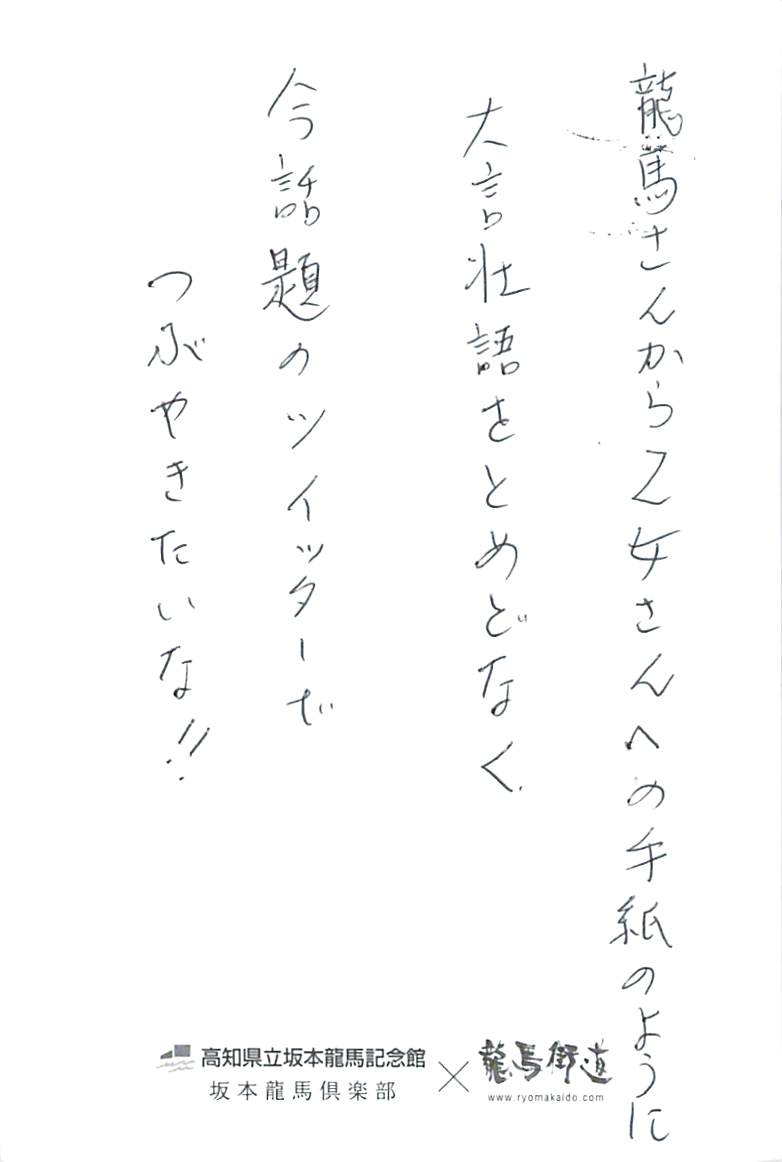 龍馬さんから乙女さんへの手紙のように
大言壮語をとめどなく
今話題のツイッターで
つぶやきたいな!!
高知県立坂本龍馬記念館
坂本龍馬倶楽部
×
龍馬街道
www.ryomakaido.com